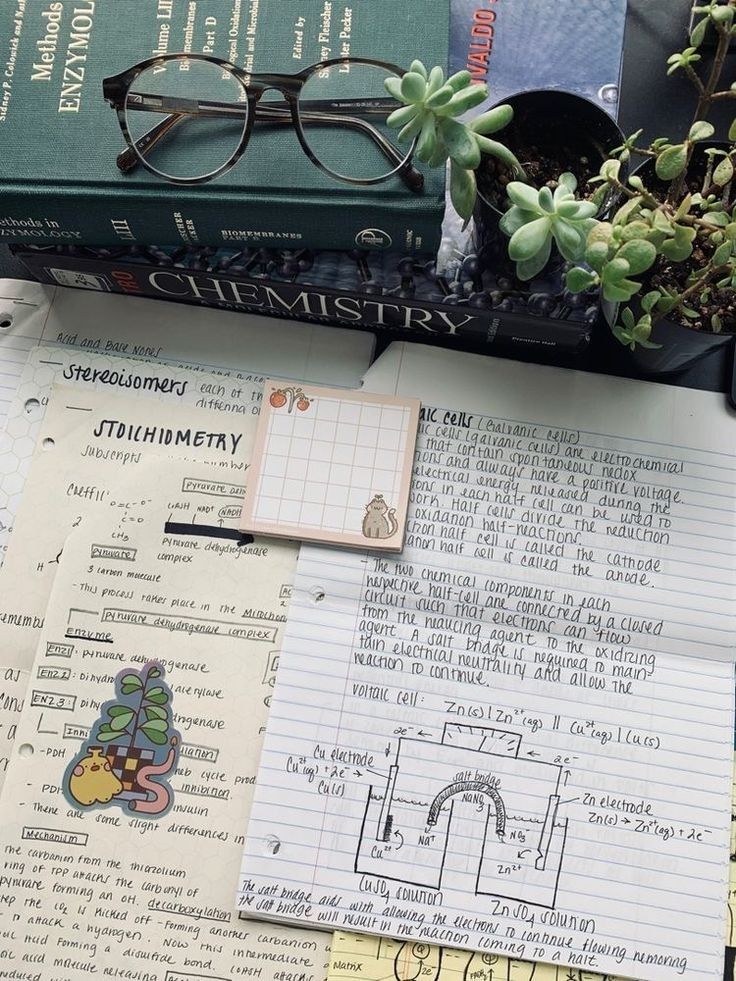 Sidney P. Colowick and
Methods
ENZYMOL
Volume LIII
Biomembranes
Part D
Biological Oxidation
and Microbial
Edited by
Sidney Fleischer
Lester Packer
IVALDO
Methods in
ENZYMOLOGY
LIII
BIOMEMBRANES
PART D
CHEMISTRY
Prentice Hall
Acid and Base Notes
Stereoisomers
each of th
STOICHIOMETRY
subscripts
coeffic
Pyruvate
3 carbon molecule
NAD+
NADH
pyruvate dehydrogenase
complex
- This process takes place in the Mitochon
Pyruvate dehydrogenase complex
Enzyme
Enz1: pyruvate dehydrogenase
Enz2: Dihydro
acetylase
Enz3: Dihy
drogenase
-PDH
-PDH
inhibition.
insulin
- There are some slight differences in
Mechanism
The carbanion from the thiazolium
ring of TPP attacks the carbonyl of
pyruvate forming an OH. decarboxylation
the CO2 is kicked off - forming another carbanion
to attack a hydrogen. Now this intermediate
forming a disulfide bond. COASH attacks
aic cells (Galvanic cells)
ic cells (galvanic cells) are electrochemical
that contain spontaneous redox
ions and always have a positive voltage.
electrical energy released during the
ions in each half cell can be used to
work. Half cells divide the reduction
oxidation half-reactions.
tion half cell is called the cathode
ation half cell is called the anode.
- The two chemical components in each
respective half-cell are connected by a closed
circuit such that electrons can flow
from the reducing agent to the oxidizing
agent. A salt bridge is required to main-
tain electrical neutrality and allow the
reaction to continue.
voltaic cell: Zn(s) | Zn2+(aq) || Cu2+(aq) | Cu(s)
2e-
2e-
Cu electrode
Cu2+(aq) + 2e- →
Cu(s)
salt bridge
NaNO3
Zn electrode
Zn(s) → Zn2+(aq) + 2e-
Na+
NO3-
Cu2+
Zn2+
CuSO4 solution
ZnSO4 solution
The salt bridge aids with allowing the electrons to continue flowing removing
the salt bridge will result in the reaction coming to a halt.
Matrix
2e-